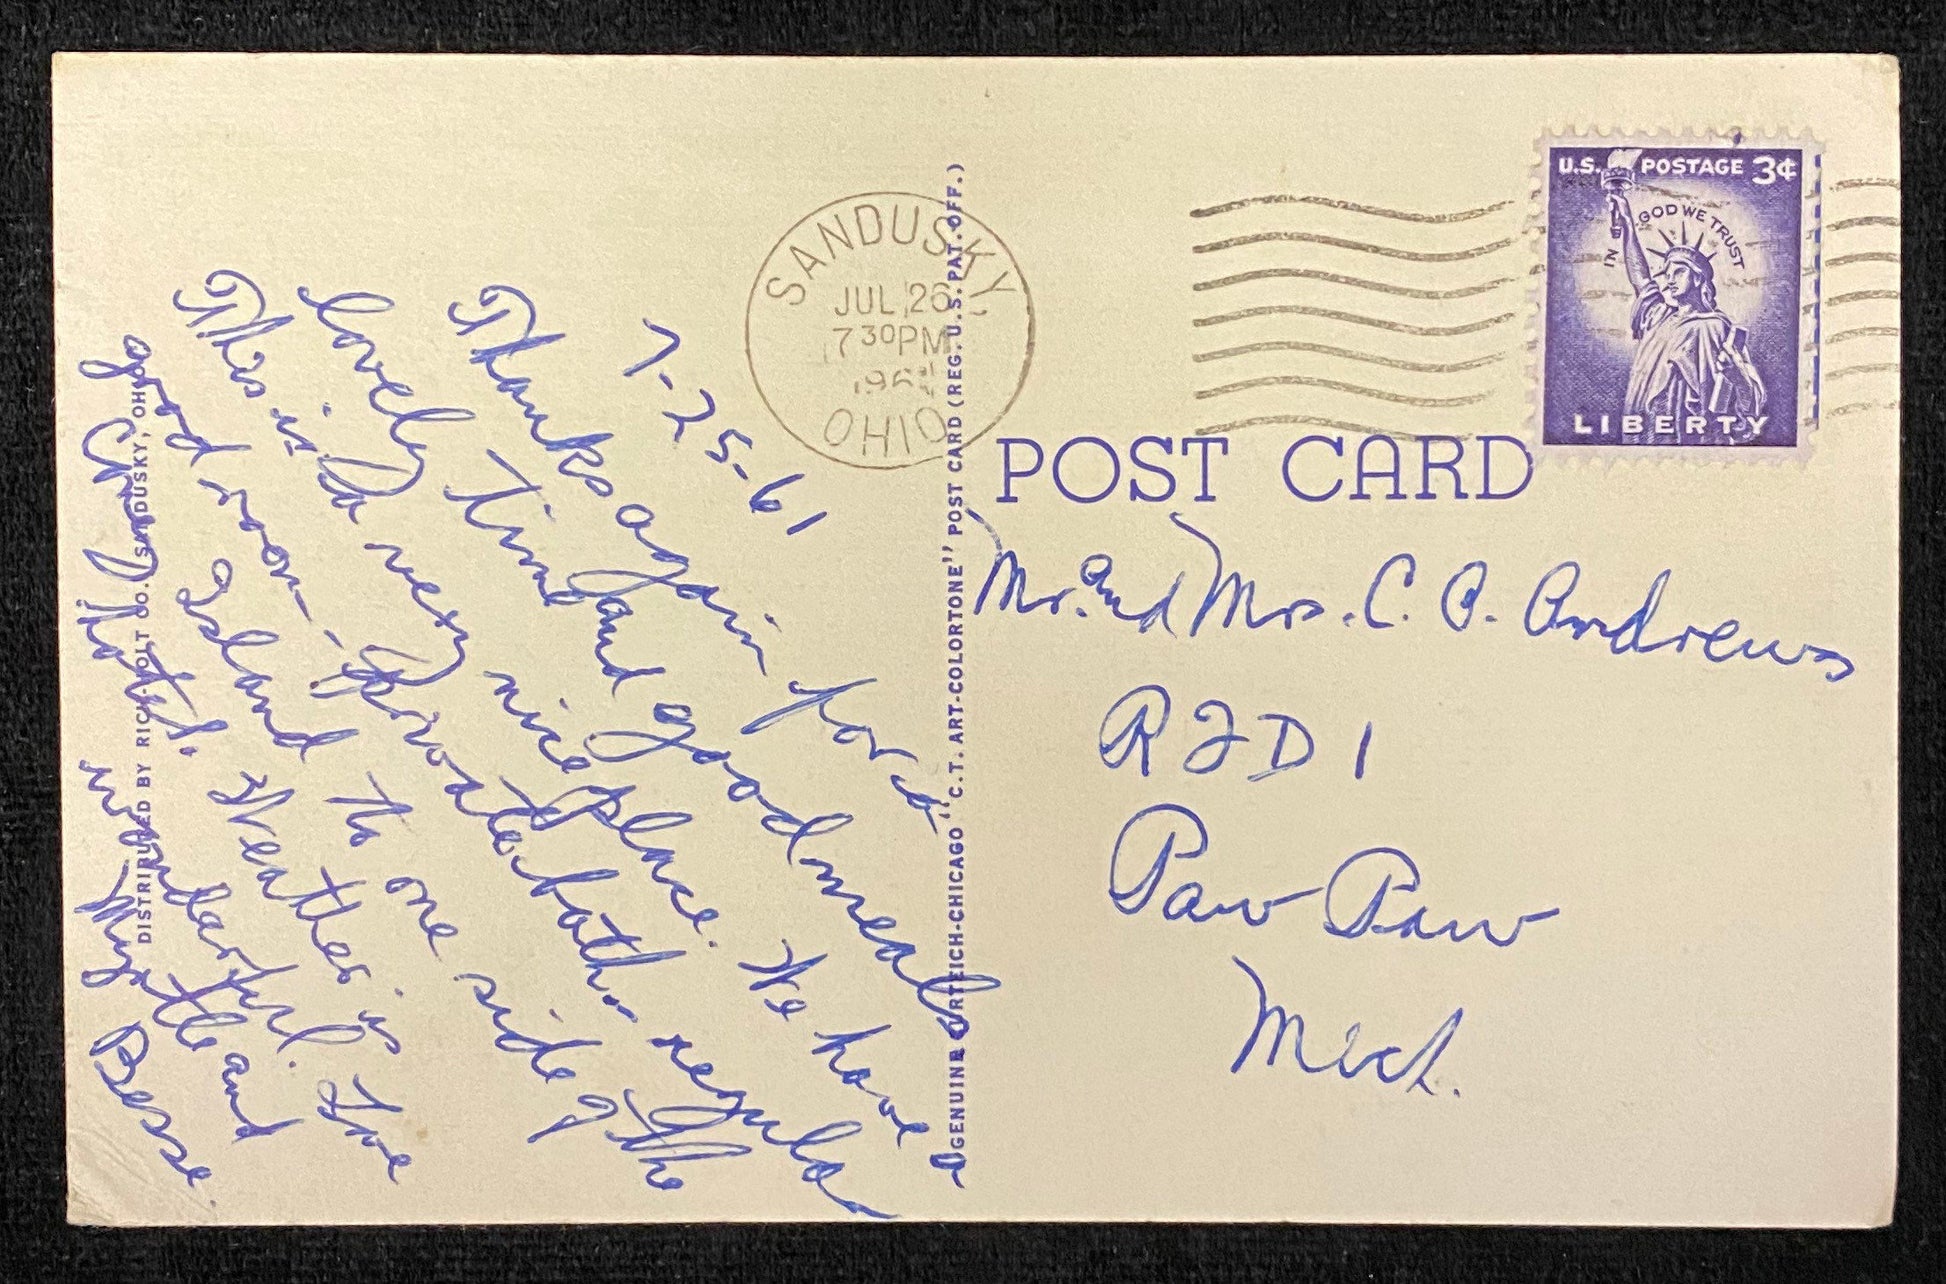 7-25-61
Thanks again for a
lovely time and good meals
This is a very nice place. We have a
good room - private bath - regular
Island to one side of the
Hotel. Weather is
wonderful. Love
Myrtle and
Besse.
DISTRIBUTED BY RICH-HOLT CO. SANDUSKY, OHIO
SANDUSKY,
JUL 26
7 30 PM
1961
OHIO
GENUINE CURTEICH-CHICAGO "C.T. ART-COLORTONE" POST CARD (REG. U.S. PAT. OFF.)
U.S. POSTAGE 3¢
IN GOD WE TRUST
LIBERTY
POST CARD
Mr. and Mrs. C. A. Andrews
RFD 1
Paw Paw
Mich.